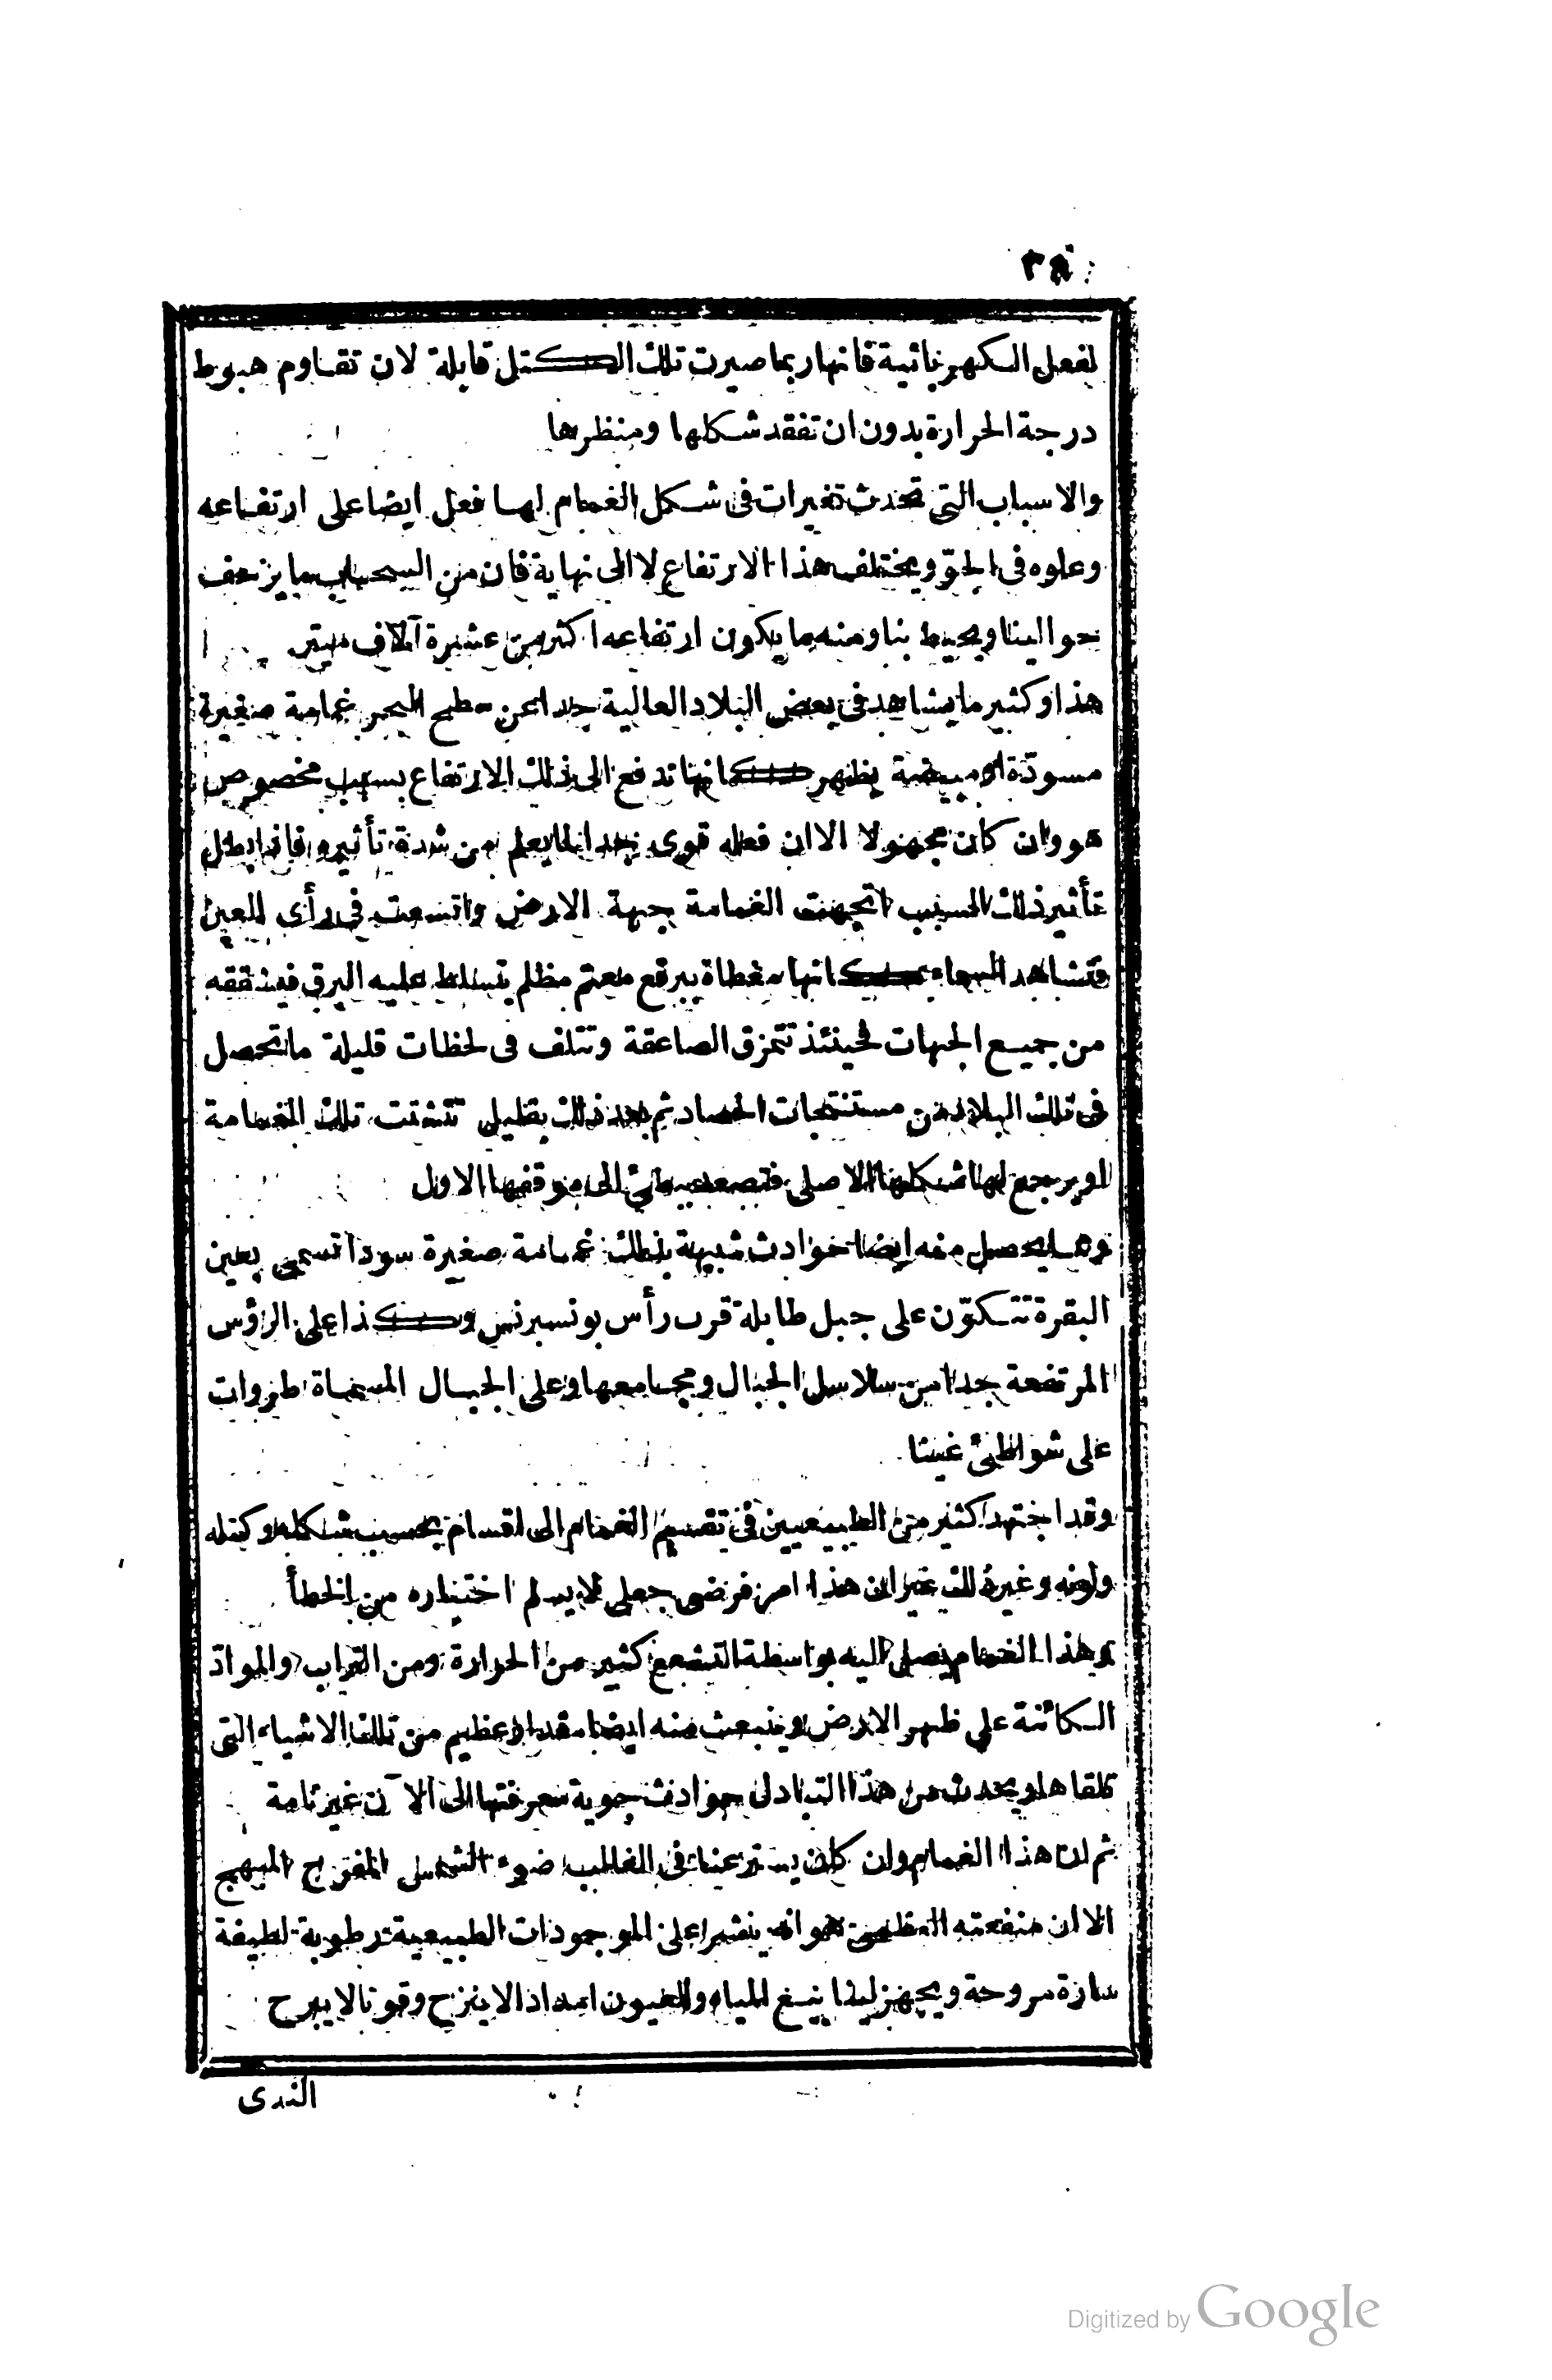 لفعل الكهربائية فانها ربما صيرت تلك الكتل قابلة لان تقاوم هبوط
درجة الحرارة بدون ان تفقد شكلها ومنظرها
والاسباب التى تحدث تغيرات فى شكل الغمام لها فعل ايضا على ارتفاعه
وعلوه فى الجوّ ويختلف هذا الارتفاع لا الى نهاية فان من السحاب ما يزحف
حوالينا ويحيط بنا ومنه ما يكون ارتفاعه اكثر من عشرة آلاف ميتر
هذا وكثير ما يشاهد فى بعض البلاد العالية جدا عن سطح البحر غمامة صغيرة
مسودّة او مبيضة يظهر كانها تدفع الى ذلك الارتفاع بسبب مخصوص
هو وان كان مجهولا الا ان فعله قوى جدا لما يعلم من شدة تأثيره فاذا بطل
تأثير ذلك السبب اتجهت الغمامة جهة الارض واتسعت فى رأى العين
فتشاهد السماء كانها مغطاة ببرقع معتم مظلم يتسلط عليه البرق فيشققه
من جميع الجهات فحينئذ تتمزق الصاعقة وتتلف فى لحظات قليلة ما تحصل
فى تلك البلاد من مستنتجات الحصاد ثم بعد ذلك بقليل تتشتت تلك الغمامة
او يرجع لها شكلها الاصلى فتصعد الى موقفها الاول
ومما يحصل منه ايضا حوادث شبيهة بذلك غمامة صغيرة سودا تسمى بعين
البقرة تتكوّن على جبل طابلة قرب رأس بونسبرنس وكذا على الرؤس
المرتفعة جدا من سلاسل الجبال ومجامعها وعلى الجبال المسماة طروات
على شواطئ غينا
وقد اجتهد كثير من الطبيعيين فى تقسيم الغمام الى اقسام بحسب شكله وكتله
ولونه وغير ذلك غير ان هذا امر فرضى جعلى لا يسلم اختباره من الخطأ
وهذا الغمام يصل اليه بواسطة التشعع كثير من الحرارة ومن التراب والموادّ
الكائنة على ظهر الارض وينبعث منه ايضا مقدار عظيم من تلك الاشياء التى
تلقاها ويحدث من هذا التبادل حوادث جوية معرفتها الى الآن غير تامة
ثم ان هذا الغمام وان كان يستر عنا فى الغالب ضوء الشمس المفرح المبهج
الا ان منفعته العظمى هو انه ينشر على الموجودات الطبيعية رطوبة لطيفة
سارة مروحة ويجهز لينابيع المياه والعيون امدادا لا ينزح وقوتا لا يبرح
الندى
Digitized by Google